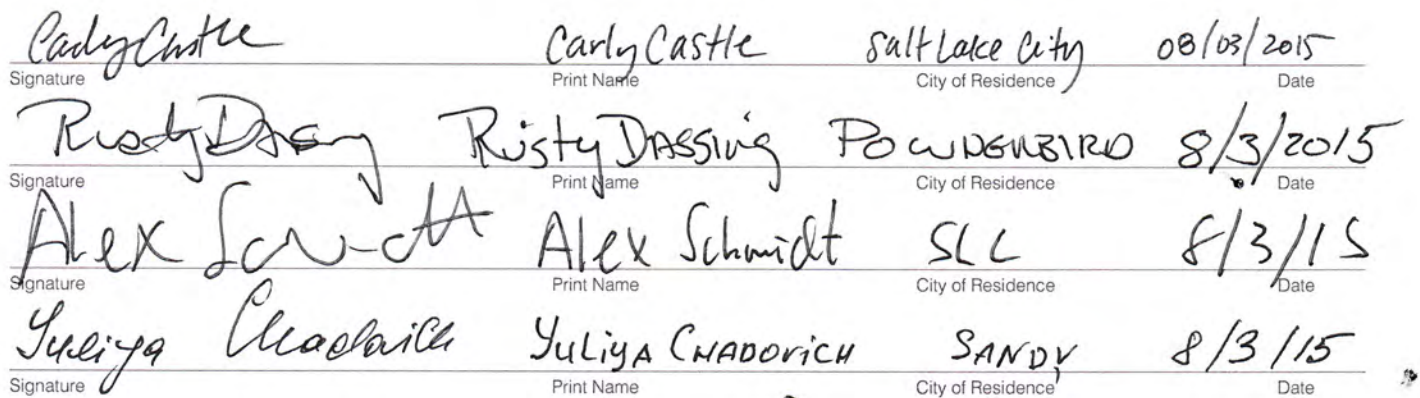 Carly Castle Carly Castle Salt Lake City 08/03/2015
Signature Print Name City of Residence Date
Rusty Dassing Risty DASSing POWDERBIRD 8/3/2015
Signature Print Name City of Residence Date
Alex Schmidt Alex Schmidt SLC 8/3/15
Signature Print Name City of Residence Date
Yuliya Chadovich YuLiyA CHADOVICH SANDY 8/3/15
Signature Print Name City of Residence Date